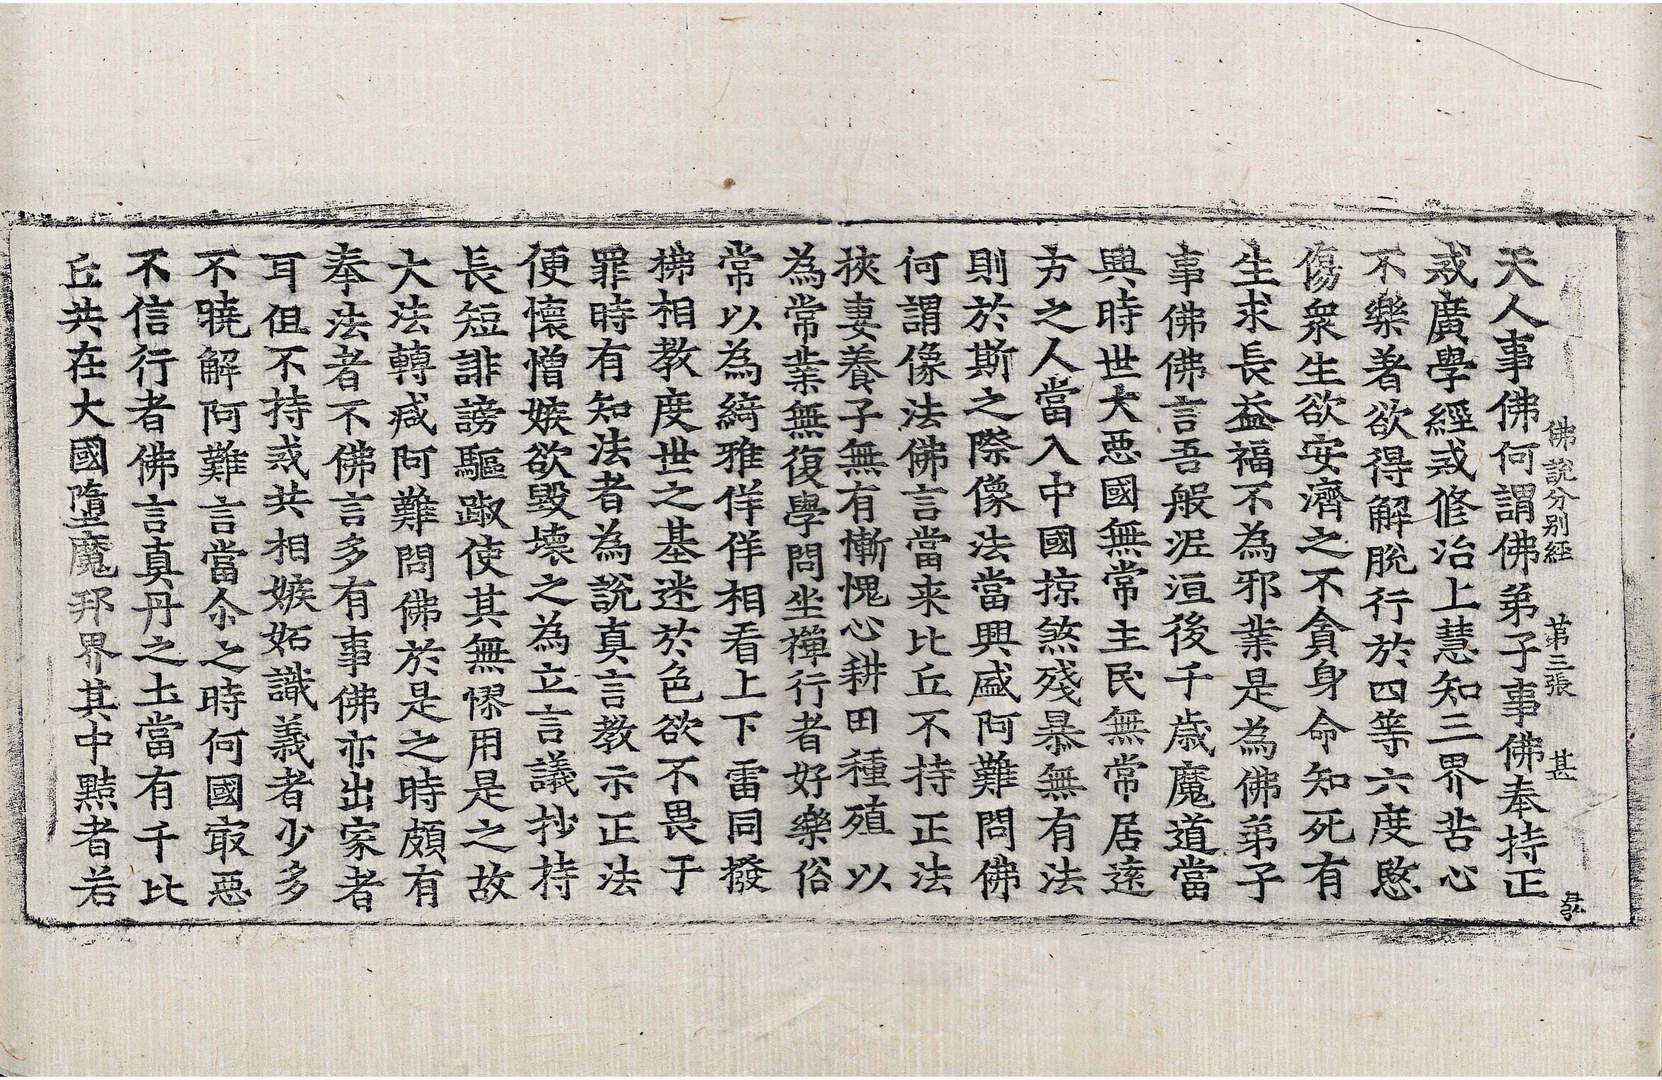 佛說分別經 第三張 甚
天人事佛何謂佛弟子事佛奉持正
戒廣學經戒修治上慧知三界苦心
不樂著欲得解脫行於四等六度愍
傷衆生欲安濟之不貪身命知死有
生求長益福不為邪業是為佛弟子
事佛佛言吾般泥洹後千歲魔道當
興時世大惡國無常主民無常居遠
方之人當入中國掠煞殘暴無有法
則於斯之際像法當興盛阿難問佛
何謂像法佛言當来比丘不持正法
挾妻養子無有慚愧心耕田種殖以
為常業無復學問坐禪行者好樂俗
常以為綺雅佯佯相看上下雷同撥
棑相教度世之基迷於色欲不畏于
罪時有知法者為說真言教示正法
便懷憎嫉欲毀壞之為立言議抄持
長短誹謗驅蹴使其無憀用是之故
大法轉减阿難問佛於是之時頗有
奉法者不佛言多有事佛亦出家者
耳但不持戒共相嫉妬識義者少多
不曉解阿難言當尒之時何國冣惡
不信行者佛言真丹之土當有千比
丘共在大國墮魔邦界其中黠者若